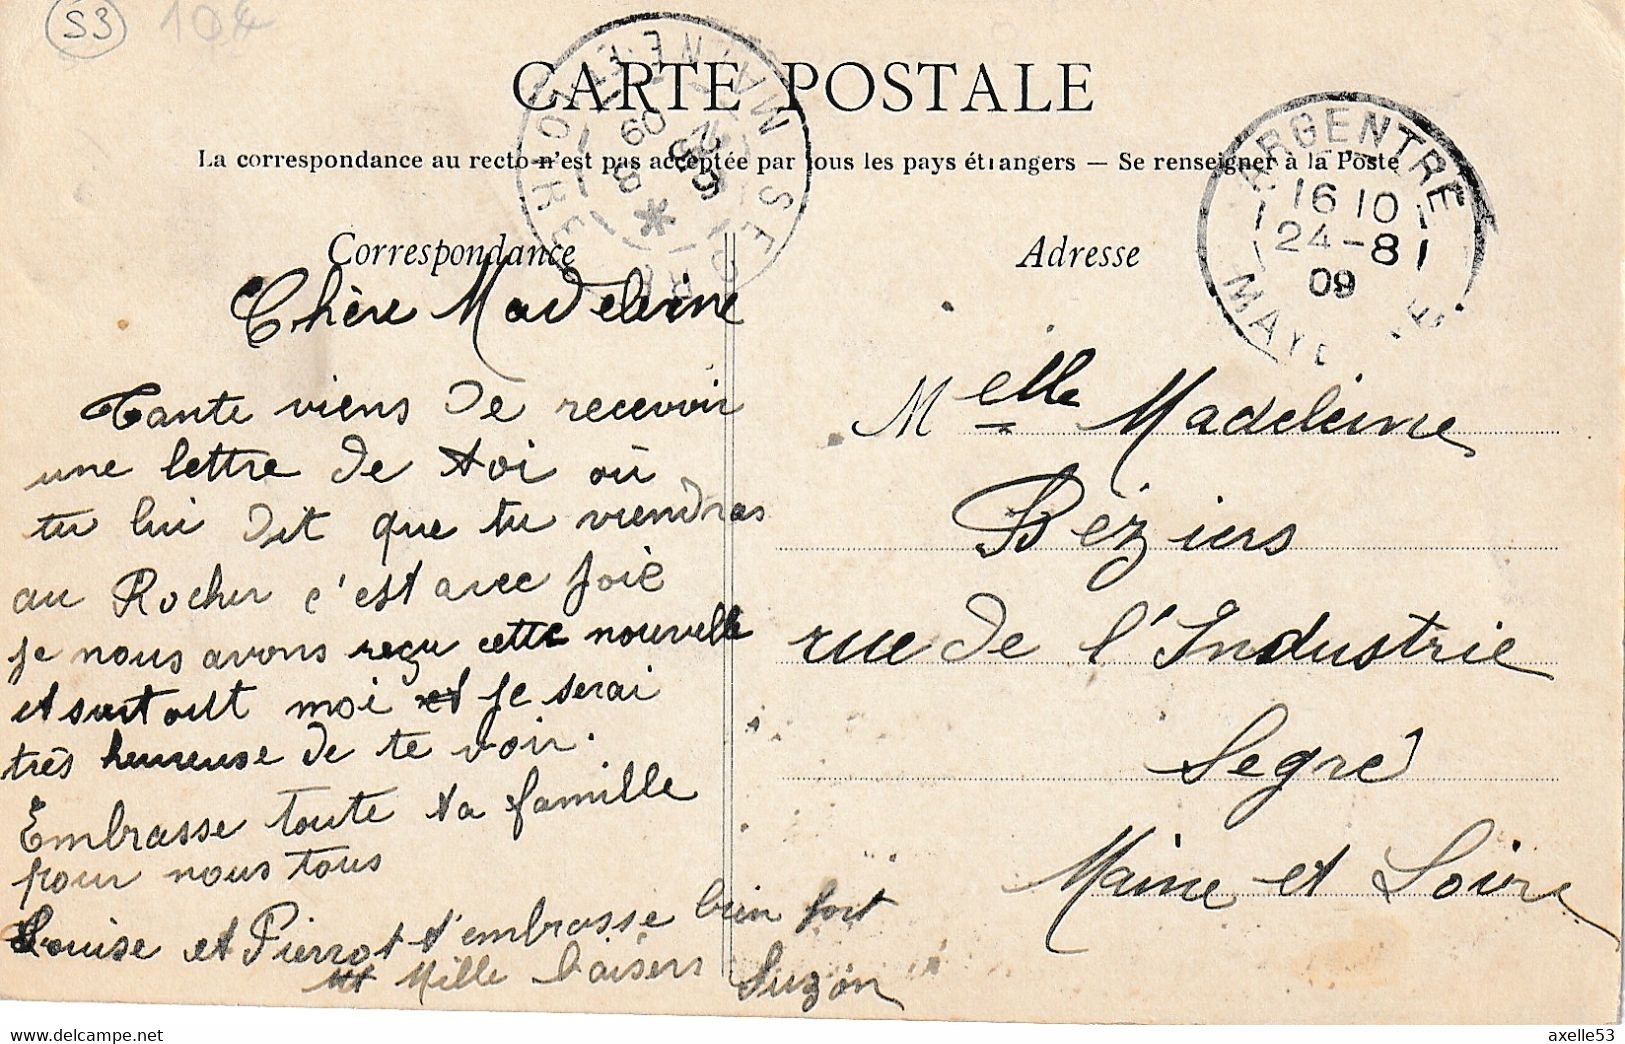 53 10€
CARTE POSTALE
La correspondance au recto n'est pas acceptée par tous les pays étrangers — Se renseigner à la Poste
Correspondance
Chère Madeleine
Tante viens de recevoir
une lettre de toi où
tu lui dit que tu viendras
au Rocher c'est avec joie
je nous avons reçu cette nouvelle
et surtout moi et je serai
très heureuse de te voir.
Embrasse toute ta famille
pour nous tous
Louise et Pierrot t'embrasse bien fort
Mille baisers Suzon
Adresse
Melle Madeleine
Béziers
rue de l'Industrie
Segré
Maine et Loire
SEGRE
MAINE ET LOIRE
8
25-8
09
ARGENTRE
16 10
24-8
09
MAYE E
www.delcampe.net
axelle53